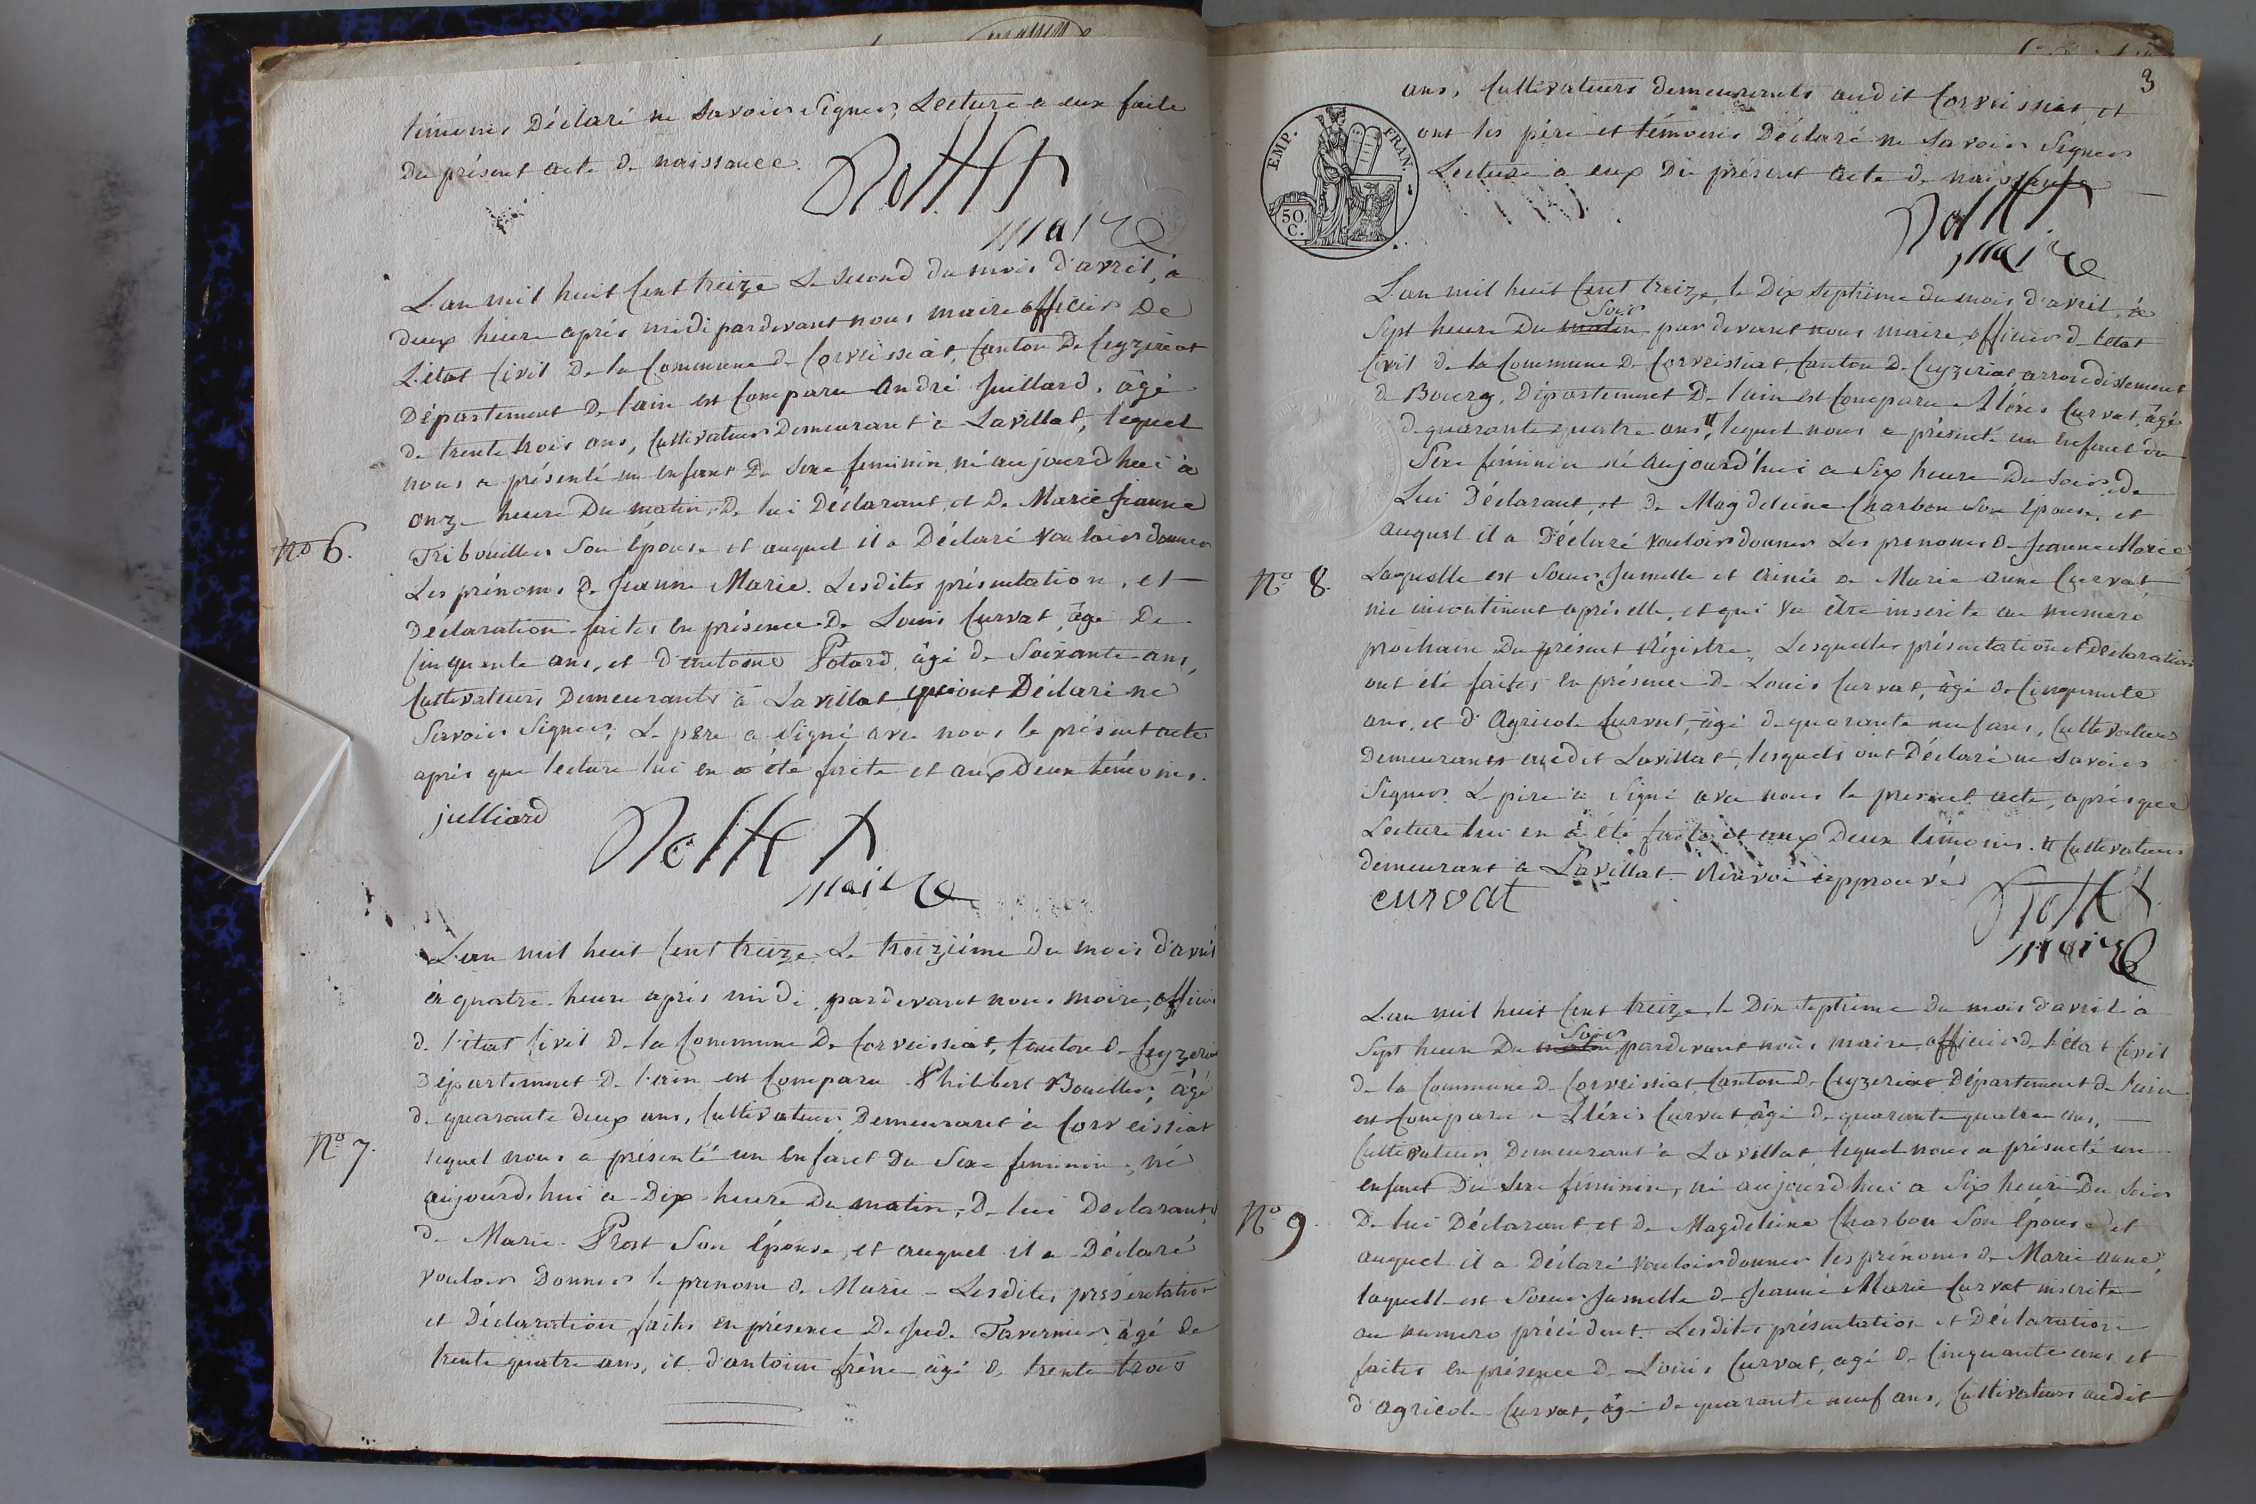 témoins Déclaré ne Savoir Signer, Lecture a eux faite
du présent acte de naissance.
maire
L'an mil huit Cent treize Le second du mois d'avril, à
deux heure après midi pardevant nous maire officier De
L'état Civil De la Commune de Corveissiat, Canton De Ceyzeriat
Département De l'ain est Comparu André Juillard, âgé
de trente trois ans, Cultivateur Demeurant à Lavillat, lequel
nous a présenté un enfant De Sexe feminin, né aujourdhui à
onze heure Du matin, De lui Déclarant, et De Marie Jeanne
N.o 6.
Tribouiller Son épouse et auquel il a Déclaré Vouloir donner
Les prénoms de Jeanne Marie. Lesdites présentation, et
Déclaration faites en présence De Louis Curvat, âgé De
Cinquante ans, et d'antoine Potard, âgé de Soixante ans,
Cultivateurs Demeurants à Lavillat, qui ont Déclaré ne
Savoir Signer; Le père a Signé avec nous le présent acte
après que lecture lui en a été faite et aux Deux témoins.
julliard
maire
L'an mil huit Cent treize Le treizième Du mois d'avril
à quatre heure après midi pardevant nous maire, officier
de l'état Civil De la Commune De Corveissiat, Canton de Ceyzeriat
Département De l'ain est Comparu Philibert Bouiller, âgé
de quarante deux ans, Cultivateur, Demeurant à Corveissiat
N.o 7.
lequel nous a présenté un enfant Du Sexe feminin, né
aujourd'hui à Dix heure Du matin, De lui Déclarant, et
de Marie Prost Son épouse, et auquel il a Déclaré
vouloir Donner le prenom de Marie - Lesdites présentation
et Déclaration faites en présence De Jude Tavernier âgé de
trente quatre ans, et d'antoine frêne âgé de trente trois
3
ans, Cultivateurs demeurants audit Corveissiat, et
ont les père et témoins Déclaré ne Savoir Signer
Lecture à eux Du présent acte de naissance
EMP. FRAN.
50. C.
maire
L'an mil huit Cent treize, le Dix septième du mois d'avril, à
Soir
Sept heure Du matin par devant nous maire, officier de l'état
Civil de la Commune De Corveissiat, Canton De Ceyzeriat arrondissement
de Bourg, Département De l'ain est Comparu Aléxis Curvat, âgé
de quarante quatre ans #, lequel nous a présenté un enfant du
Sexe féminin né Aujourd'hui a Six heure Du Soir, de
Lui Déclarant, et De Magdeleine Charbon Son épouse, et
auquel il a Déclaré vouloir donner Les prenoms de Jeanne Marie
N.o 8.
Laquelle est Soeur Jumelle et ainée De Marie anne Curvat
née incontinent après elle, et qui va être inscrite au numero
prochain Du présent Régistre, Lesquelles présentation et Déclaration
ont été faites en présence De Louis Curvat, âgé de Cinquante
ans, et d'Agricole Curvat, âgé de quarante neuf ans, Cultivateurs
Demeurants audit Lavillat, lesquels ont Déclaré ne Savoir
Signer. Le père a Signé avec nous le present acte, après que
Lecture lui en a été faite et aux Deux témoins. # Cultivateur
demeurant à Lavillat. Renvoi approuvé
curvat
maire
L'an mil huit Cent treize, le Dix septième Du mois d'avril à
Soir
Sept heure Du matin pardevant nous maire officier de l'état Civil
de la Commune De Corveissiat, Canton de Ceyzeriat Département de l'ain
est Comparu Aléxis Curvat âgé de quarante quatre ans,
Cultivateur, Demeurant à Lavillat lequel nous a présenté un
enfant Du Sexe féminin, né aujourdhui a Six heure Du Soir
N.o 9.
De lui Déclarant et de Magdeleine Charbon Son épouse et
auquel il a Déclaré Vouloir donner les prénoms de Marie anne,
laquelle est Soeur Jumelle de Jeanne Marie Curvat inscrite
au numero précédent. Lesdites présentation et Déclaration
faites en présence De Louis Curvat, agé de Cinquante ans, et
d'agricole Curvat, âgé de quarante neuf ans, Cultivateurs audit